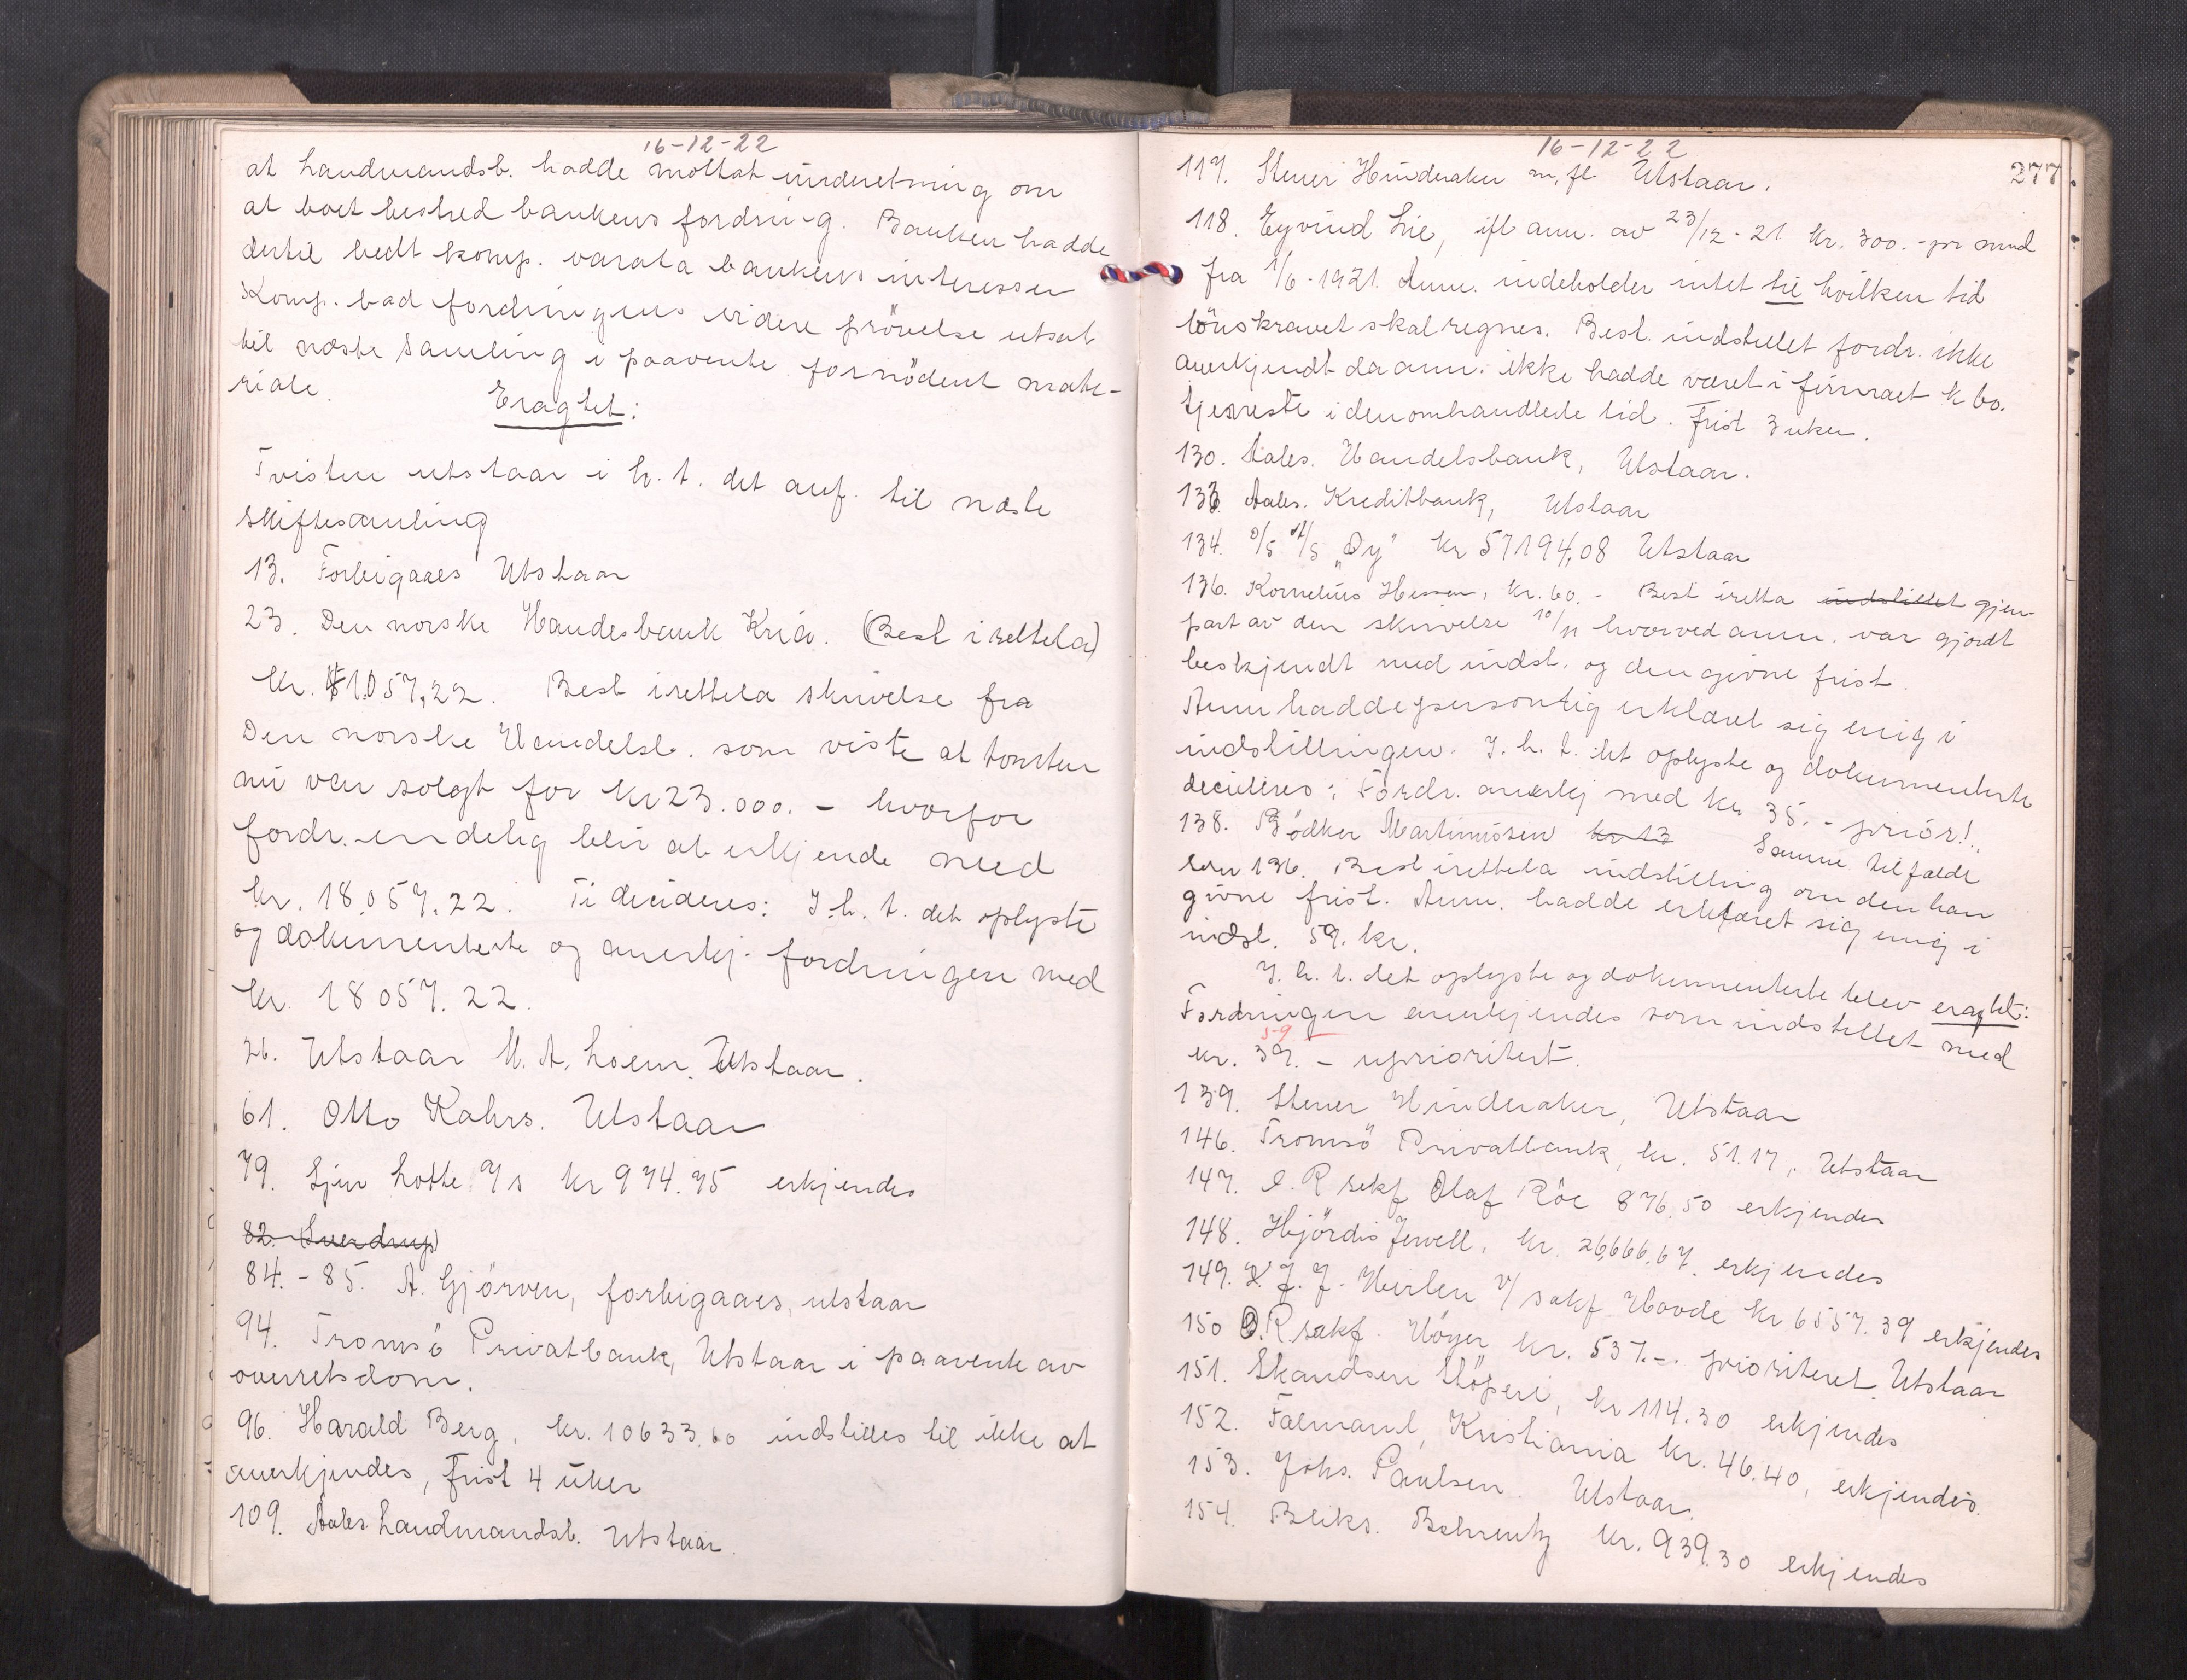 16-12-22
at Landmandsb. hadde mottat underetning om
at boet bestred bankens fordring. Banken hadde
dertil bedt komp. vareta bankens interesser
Komp. bad fordringens videre prövelse utsat
til næste samling i paavente fornödent mate-
riale. Eragtet:
Tvisten utstaar i h. t. det anf. til næste
skiftesamling
13. Forbigaaes Utstaar
23. Den norske Handesbank Kria. (Best irettela)
kr. 81.057,22. Best irettela skrivelse fra
Den norske Handelsb. som viste at tomten
nu var solgt for kr 23.000.- hvorfor
fordr. endelig blir at erkjende med
kr. 18.057.22. Ti decideres: I. h. t. det oplyste
og dokumenterte og anerkj. fordringen med
kr. 18 057.22.
26. Utstaar M. A. Loen. Utstaar.
61. Otto Kahrs. Utstaar
79. Lotte A/s kr 974.75 erkjendes
82. (Sverdrup)
84.-85. A. Gjörven, forbigaaes, utstaar
94. Tromsö Privatbank, Utstaar i paavente av
overretsdom.
96. Harald Berg, kr. 10633.60 indstilles til ikke at
anerkjendes, Frist 4 uker
109. Aales Landmandsb. Utstaar.
16-12-22
277
117. Stener Hinderaker m. fl. Utstaar.
118. Eyvind Lie, ifl anm. av 23/12-21 kr. 300.- pr mnd
fra 1/6-1921. Anm. indeholder intet til hvilken tid
lönskravet skal regnes. Best. indstillet fordr. ikke
anerkjendt da anm. ikke hadde været i firmaet k bo.
tjeneste i den omhandlede tid. Frist 3 uker.
130. Aales. Handelsbank, Utstaar.
133. Aales. Kreditbank, Utstaar
134. D/S A/S "Dy" kr 57194,08 Utstaar
136. Kornelius Hessen, kr. 60.- Best iretta indstillet gjen-
part av den skrivelse 10/11 hvorved anm. var gjordt
beskjendt med indst. og den givne frist.
Anm hadde personlig erklæret sig enig i
indstillingen. I. h. t. det oplyste og dokumenterte
decideres: Fordr. anerkj med kr 35.- prior!.
138. Bödker Martinusen kr 13 Samme tilfælde
som 136. Best irettela indstilling om den han
givne frist. Anm. hadde erklæret sig enig i
indst. 59. kr.
I. h. t. det oplyste og dokumenterte blev eragtet:
Fordringen anerkjendes som indstillet med
59
kr. 39.- uprioritert.
139. Stener Hinderaker, Utstaar
146. Tromsö Privatbank, kr. 51.17, Utstaar
147. O. R sakf Olaf Röe 876.50 erkjendes
148. Hjördis Jewell, kr. 26,666.67. erkjendes
149. J. J. Herlen v/ sakf Hovde kr 6557.39 erkjendes
150 O.R.sakf. Höyer kr. 537.-. prioriteret. Utstaar
151. Skandsen Stöperi, kr 114.30 erkjendes
152. Falmand, Kristiania kr. 46.40, erkjendes.
153. Johs. Paulsen. Utstaar.
154. Bliks. Behrentz kr. 939.30 erkjendes